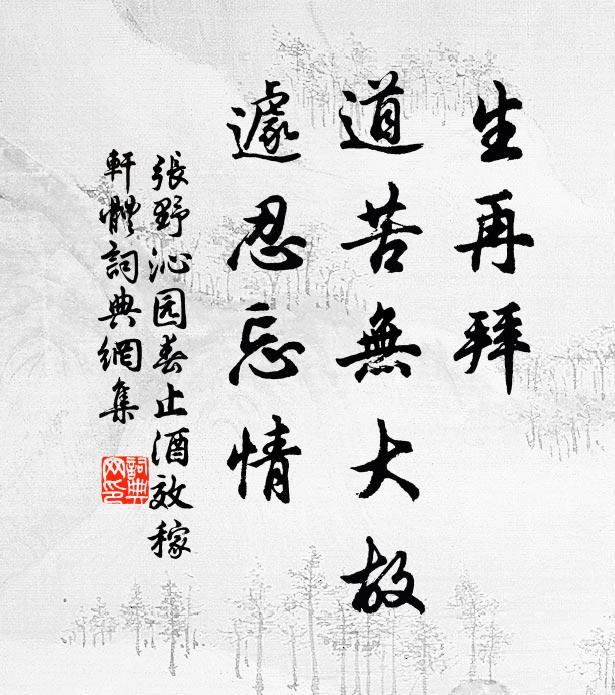 生再拜
道苦無大故
遽忍忘情
張野沁园春止酒效稼
軒體詞典網集
詞典
网印